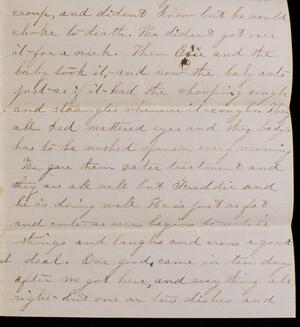 croup, and dident know but he would
choke to death. He dident get over
it for a week. Then Evie and the
baby took it, and now the baby acts
just as if it had the whooping cough
and strangles whenever it coughs. They
all had mattered eyes and the babys
has to be washed open every morning
We gave them water treatment and
they are all well but Freddie and
he is doing well. He is just as fat
and cute as ever, begins to notice
things and laughs and crows a good
deal. Our goods came in ten days
after we got here, and everything all
right but one or two dishes and